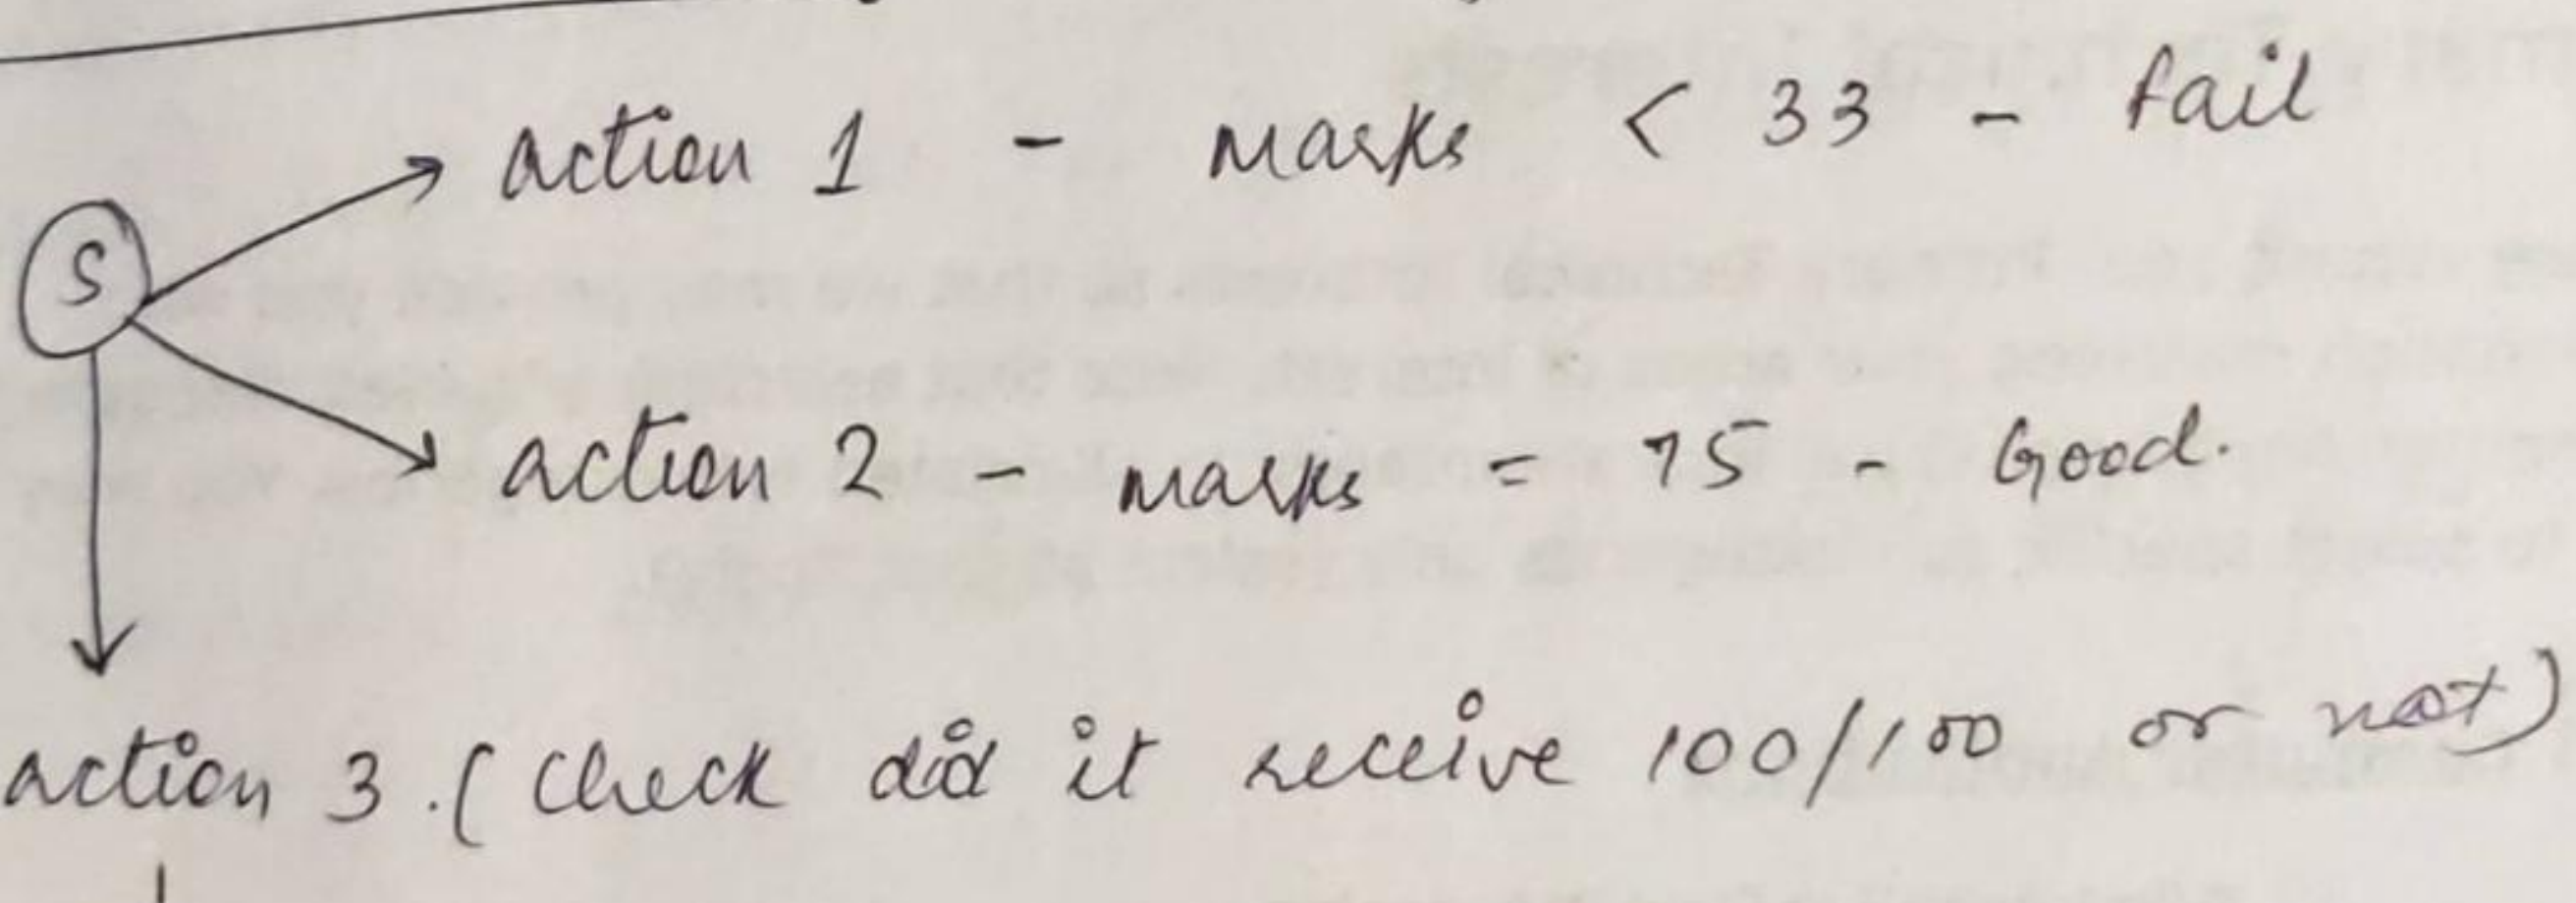 action 1 - marks < 33 - fail
S
action 2 - marks = 75 - Good.
action 3. (Check did it receive 100/100 or not)